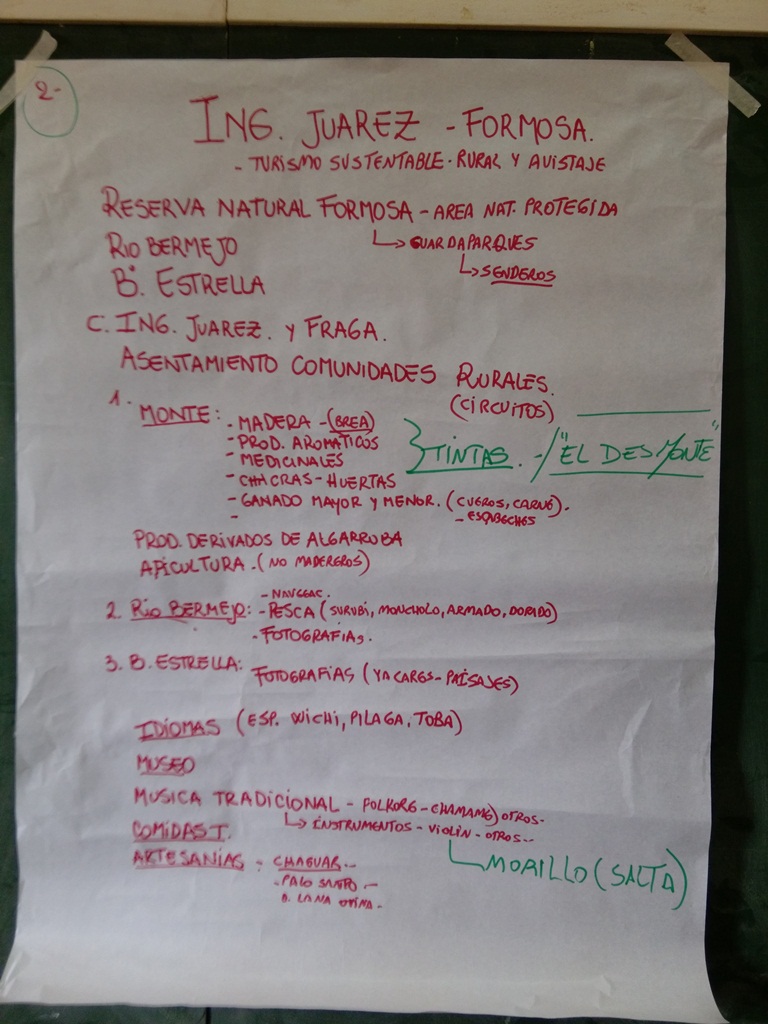 2-
ING. JUAREZ - FORMOSA.
- TURISMO SUSTENTABLE - RURAL Y AVISTAJE
RESERVA NATURAL FORMOSA - AREA NAT. PROTEGIDA
RIO BERMEJO
↳ GUARDAPARQUES
↳ SENDEROS
B. ESTRELLA
C. ING. JUAREZ. Y FRAGA.
ASENTAMIENTO COMUNIDADES RURALES.
(CIRCUITOS)
1. MONTE: - MADERA - (BREA)
- PROD. AROMATICOS
- MEDICINALES
} TINTAS. - / "EL DESMONTE"
- CHACRAS - HUERTAS
- GANADO MAYOR Y MENOR. (CUEROS, CARNE).
- ESCABECHES
PROD. DERIVADOS DE ALGARROBA
APICULTURA. (NO MADEREROS)
- NAVEGAC.
2. RIO BERMEJO: - PESCA (SURUBI, MONCHOLO, ARMADO, DORADO)
- FOTOGRAFIAS.
3. B. ESTRELLA: FOTOGRAFIAS (YACARES - PAISAJES)
IDIOMAS (ESP. WICHI, PILAGA, TOBA)
MUSEO
MUSICA TRADICIONAL - FOLKORE - CHAMAME) OTROS-
↳ INSTRUMENTOS - VIOLIN - OTROS--
COMIDAS T.
MORILLO (SALTA)
ARTESANIAS - CHAGUAR--
- PALO SANTO -
LANA OVINA -